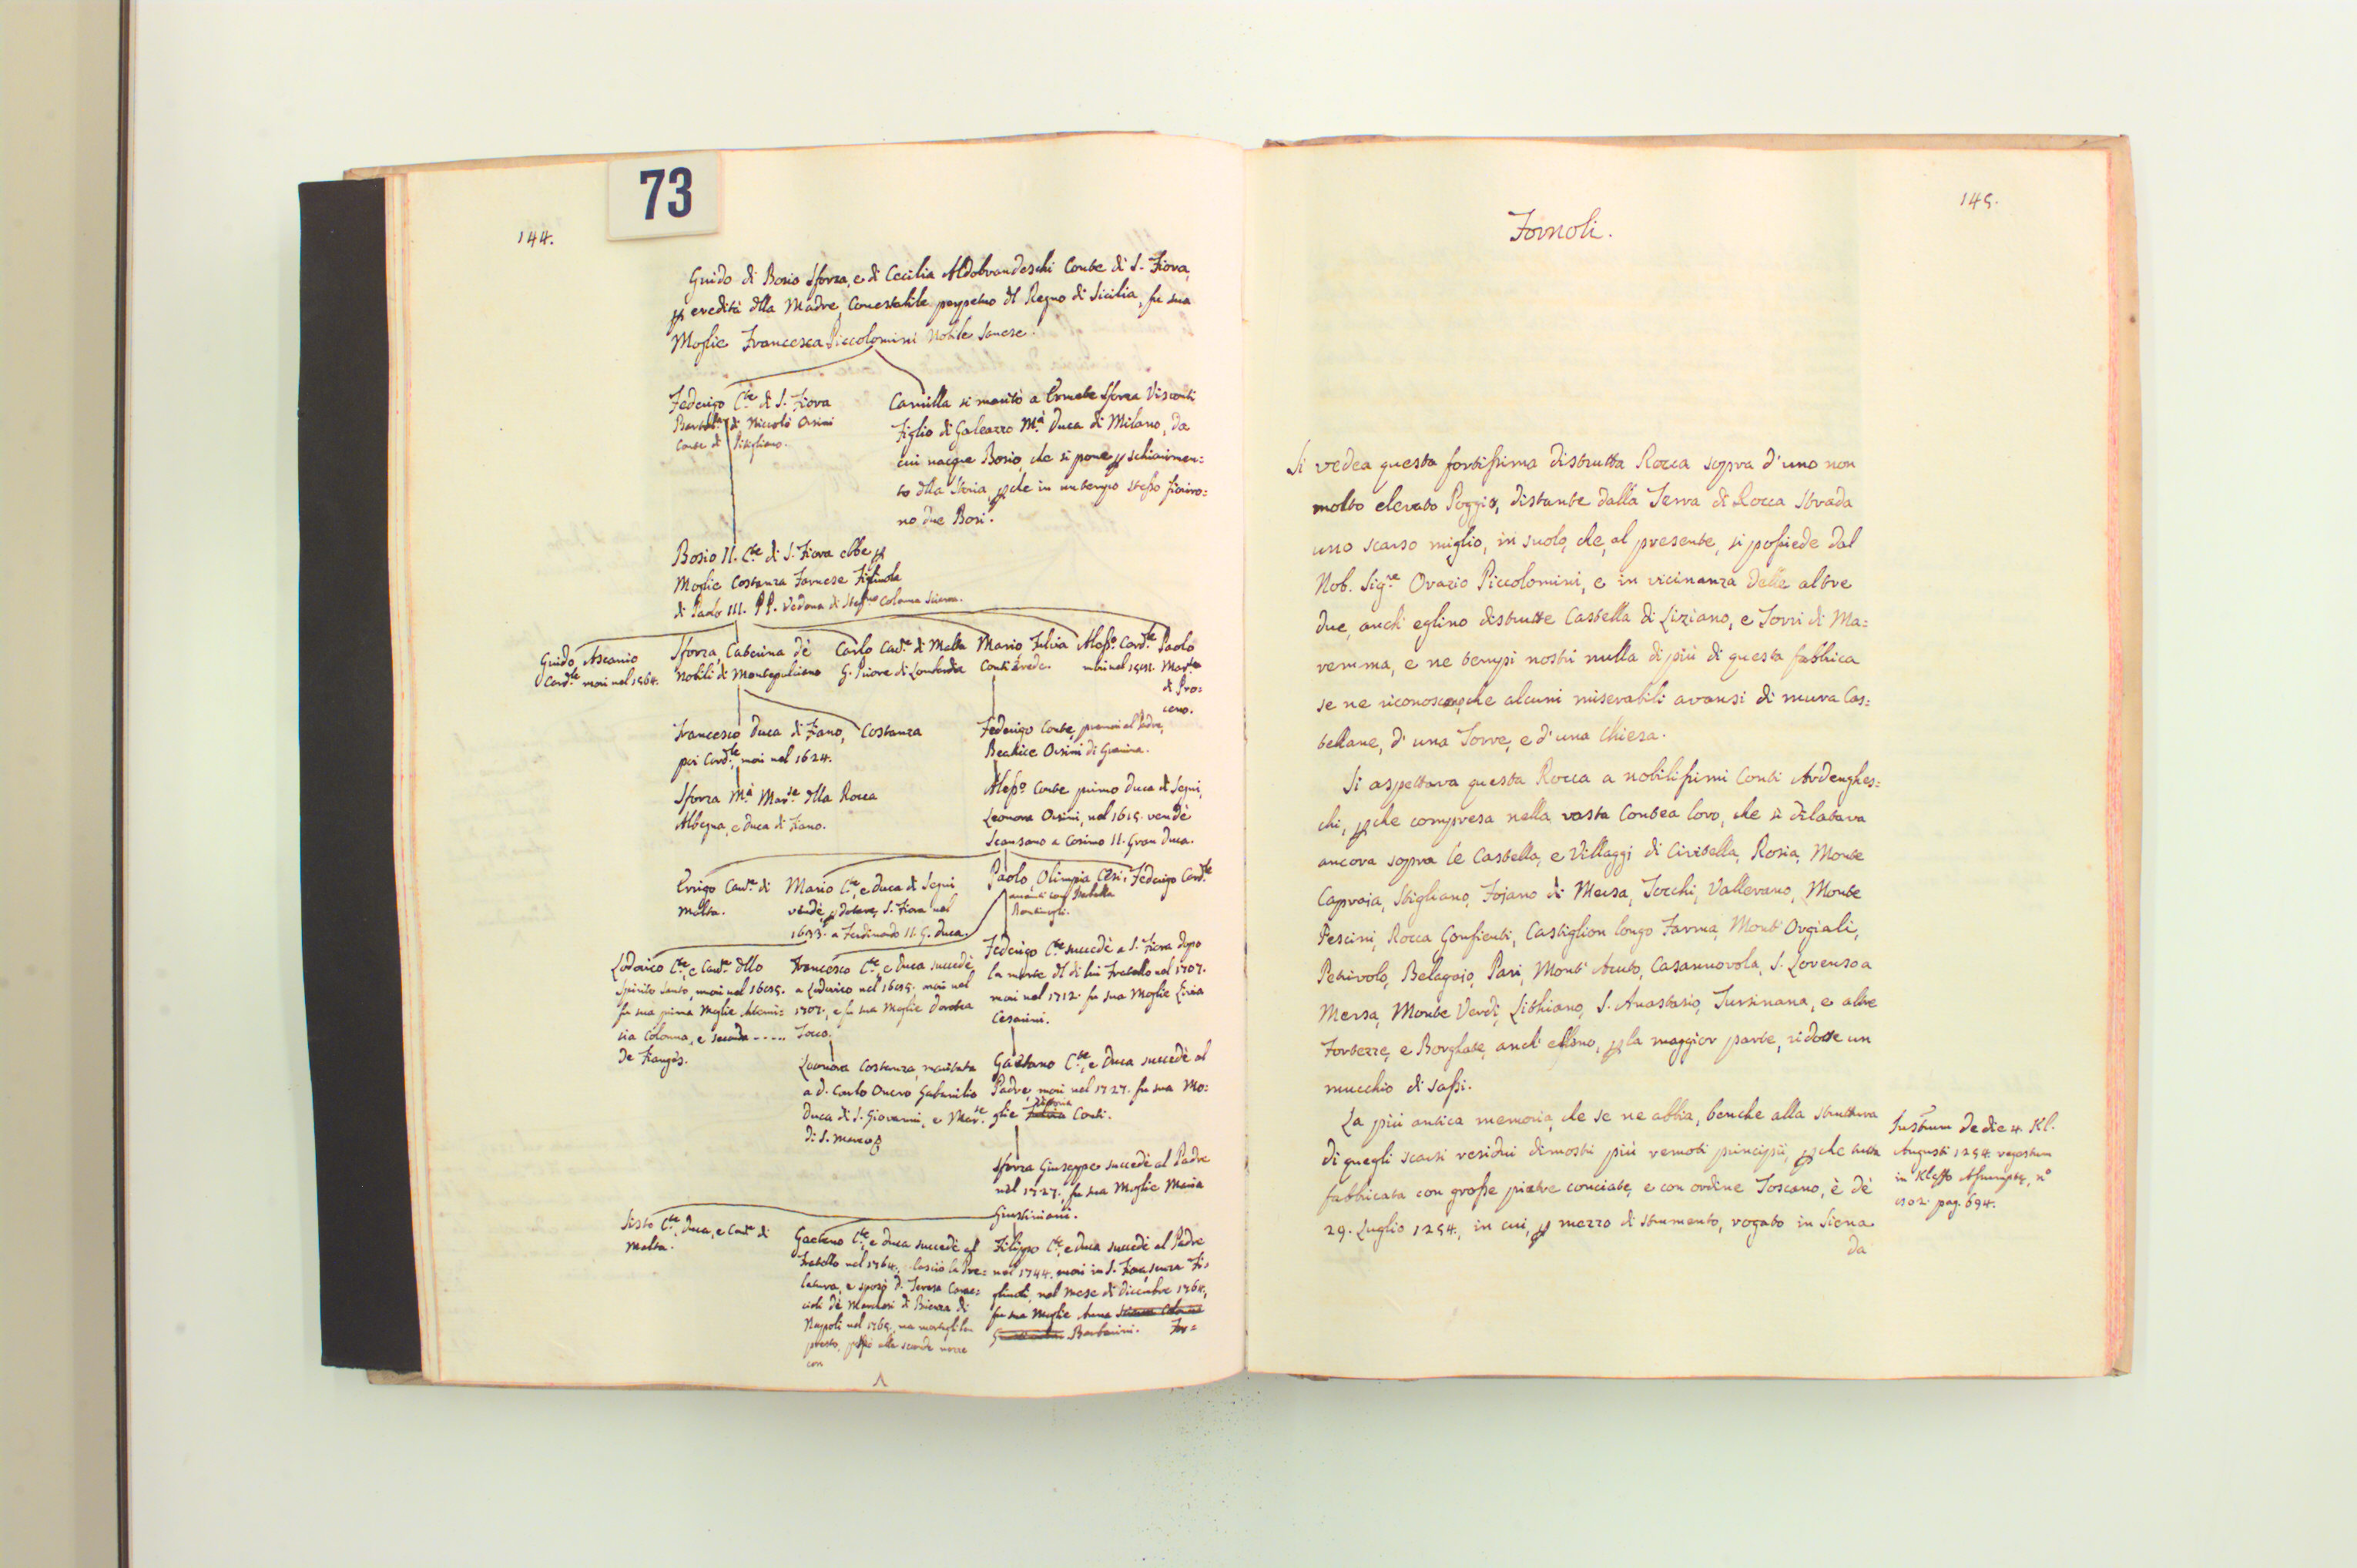 73
144.
Guido di Bosio Sforza, e di Cecilia Aldobrandeschi Conte di S. Fiora,
p eredità dlla Madre, Conestabile perpetuo dl Regno di Sicilia, fu sua
Moglie Francesca Piccolomini Nobile Sanese.
Federigo Cte di S. Fiora
Bartola di Niccolò Orsini
Conte di Pitigliano.
Camilla si maritò a Ermete Sforza Visconti
Figlio di Galeazzo Ma Duca di Milano, da
cui nacque Bosio, che si pone p schiarimen=
to dlla Storia, pche in un tempo stesso fioriro=
no due Bosi.
Bosio II. Cte di S. Fiora ebbe p
Moglie Costanza Farnese Figliuola
di Paolo III. PP. Vedova di Stefno Colonna Sciarra.
Guido Ascanio
Cardle morì nel 1564.
Sforza, Caterina de'
Nobili di Montepulciano
Carlo Cavre di Malta
G. Priore di Lombardia
Mario, Fulvia
Conti Erede.
Alesso Cardle
morì nel 1581.
Paolo
Marse
di Pro=
ceno.
Francesco Duca di Fiano,
poi Cardle, morì nel 1624.
Costanza
Federigo Conte, premorì al Padre,
Beatrice Orsini di Gravina.
Sforza Ma Marse dlla Rocca
Albegna, e Duca di Fiano.
Alesso Conte primo Duca di Segni,
Leonora Orsini, nel 1615. vendè
Scansano a Cosimo II. Gran Duca.
Errigo Cavre di
Malta.
Mario Cte, e Duca di Segni
vendè, p dotare, S. Fiora nel
1633. a Ferdinando II. G. Duca.
Paolo, Olimpia Cesi,
Federigo Cardle
Lodovico Cte, e Cavre dllo
Spirito Santo, morì nel 1685.
fu sua prima Moglie Artemi=
sia Colonna, e seconda .....
De Tianges.
Francesco Cte, e Duca succedè
a Lodovico nel 1685. morì nel
1707., e fu sua Moglie Dorotea
Tocco.
Federigo Cte succedè a S. Fiora dopo
la morte dl di lui Fratello nel 1707.
morì nel 1712. fu sua Moglie Livia
Cesarini.
Leonora Costanza, maritata
a D. Carlo Onero Gabrielio
Duca di S. Giovanni, e Marse
di S. Marco
Gaetano Cte, e Duca succedè al
Padre, morì nel 1727. fu sua Mo=
glie Vittoria Conti.
Sforza Giuseppe succedè al Padre
nel 1727., fu sua Moglie Maria
Giustiniani.
Sisto Cte, Duca, e Cavre di
Malta.
Gaetano Cte, e Duca succedè al
Fratello nel 1764., lasciò la Pre=
latura, e sposò D. Teresa Carac=
cioli de' Marchesi di Brienza di
Napoli nel 1765., ma mortagli ben
presto, passò alle seconde nozze
con
Filippo Cte, e Duca succedè al Padre
nel 1744. morì in S. Fiora, senza Fi=
gliuoli, nel Mese di Dicembre 1764.,
fu sua Moglie Anna
Barberini.
For=
145.
Fornoli.
Si vedea questa fortissima distrutta Rocca sopra d'uno non
molto elevato Poggio, distante dalla Terra di Rocca Strada
uno scarso miglio, in suolo, che, al presente, si possiede dal
Nob. Sigre Orazio Piccolomini, e in vicinanza delle altre
due, anch' eglino distrutte Castella di Liziano, e Torri di Ma=
remma, e ne tempi nostri nulla di più di questa fabbrica
se ne riconosce, che alcuni miserabili avansi di mura Cas=
tellane, d' una Torre, e d' una Chiesa.
Si aspettava questa Rocca a nobilissimi Conti Ardenghes=
chi, pche compresa nella vasta Contea loro, che si dilatava
ancora sopra le Castella, e Villaggi di Civitella, Rosia, Monte
Capraia, Stigliano, Fojano di Mersa, Tocchi, Vallerano, Monte
Pescini, Rocca Gonfienti, Castiglion longo Farma, Mont' Orgiali,
Petriolo, Belagaio, Pari, Mont' Acuto, Casannovola, S. Lorenso a
Mersa, Monte Verdi, Lithiano, S. Anastasio, Tursinana, e altre
Fortezze, e Borghate, anch' essino, p la maggior parte, ridotte un
mucchio di sassi.
La più antica memoria, che se ne abbia, benche alla struttura
di quegli scarsi residui dimostri più remoti principii, pche tutta
fabbricata con grosse pietre conciate, e con ordine Toscano, è de'
29. Luglio 1254., in cui, p mezzo di strumento, rogato in Siena
da
Justum de die 4. Kl.
Augusti 1254. regestum
in Kleffo Assumptę, n°
pag. 694.